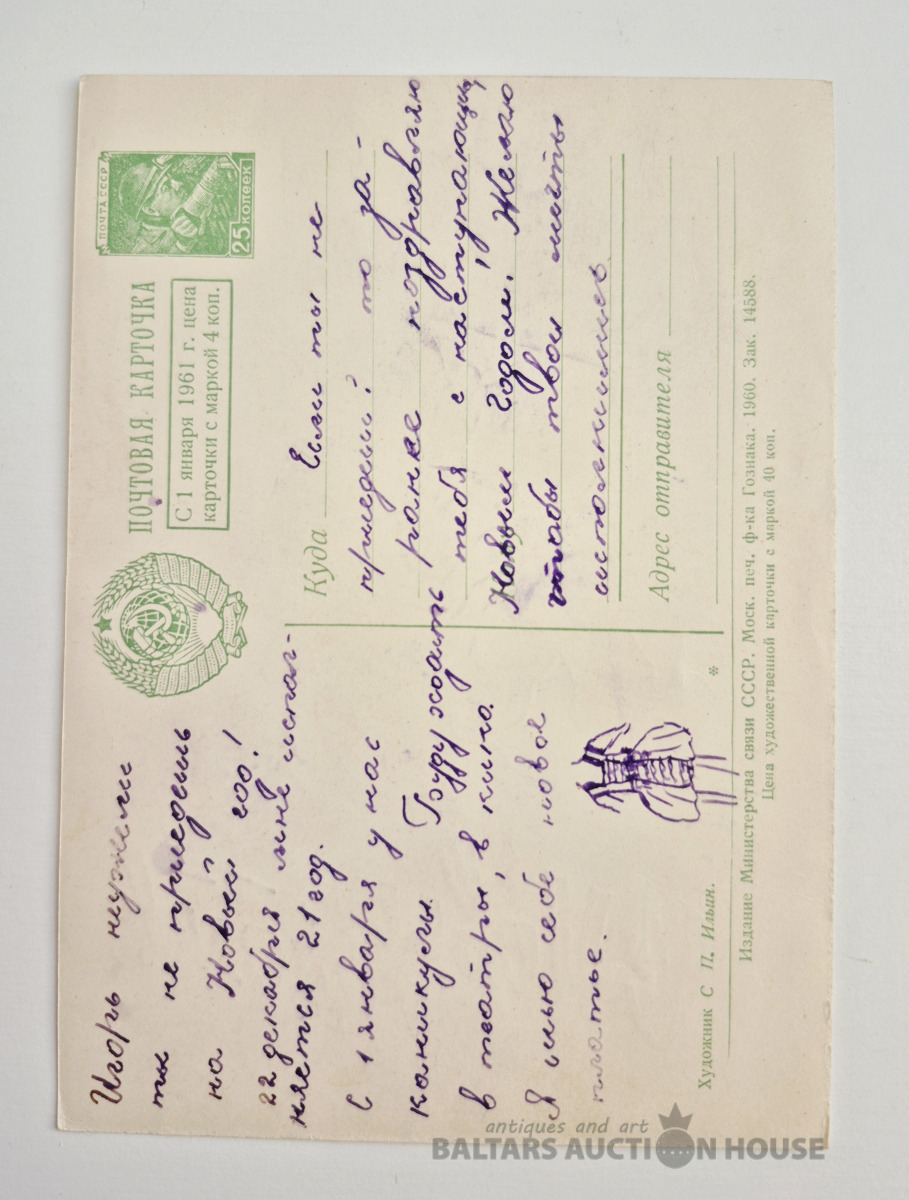 Игорь неужели
ты не приедешь
на Новый год!
22 декабря мне испол-
няется 21 год.
С 1 января у нас
каникулы. Буду ходить
в театры, в кино.
Я шью себе новое
платье.
Художник С. П. Ильин.
ПОЧТОВАЯ КАРТОЧКА
С 1 января 1961 г. цена
карточки с маркой 4 коп.
ПОЧТА СССР
25 КОПЕЕК
Куда
Если ты не
приедешь то за-
ранее поздравляю
тебя с наступающим
Новым Годом! Желаю
чтобы твои мечты
исполнились
Адрес отправителя
*
Издание Министерства связи СССР. Моск. печ. ф-ка Гознака. 1960. Зак. 14588.
Цена художественной карточки с маркой 40 коп.
antiques and art
BALTARS AUCTION HOUSE